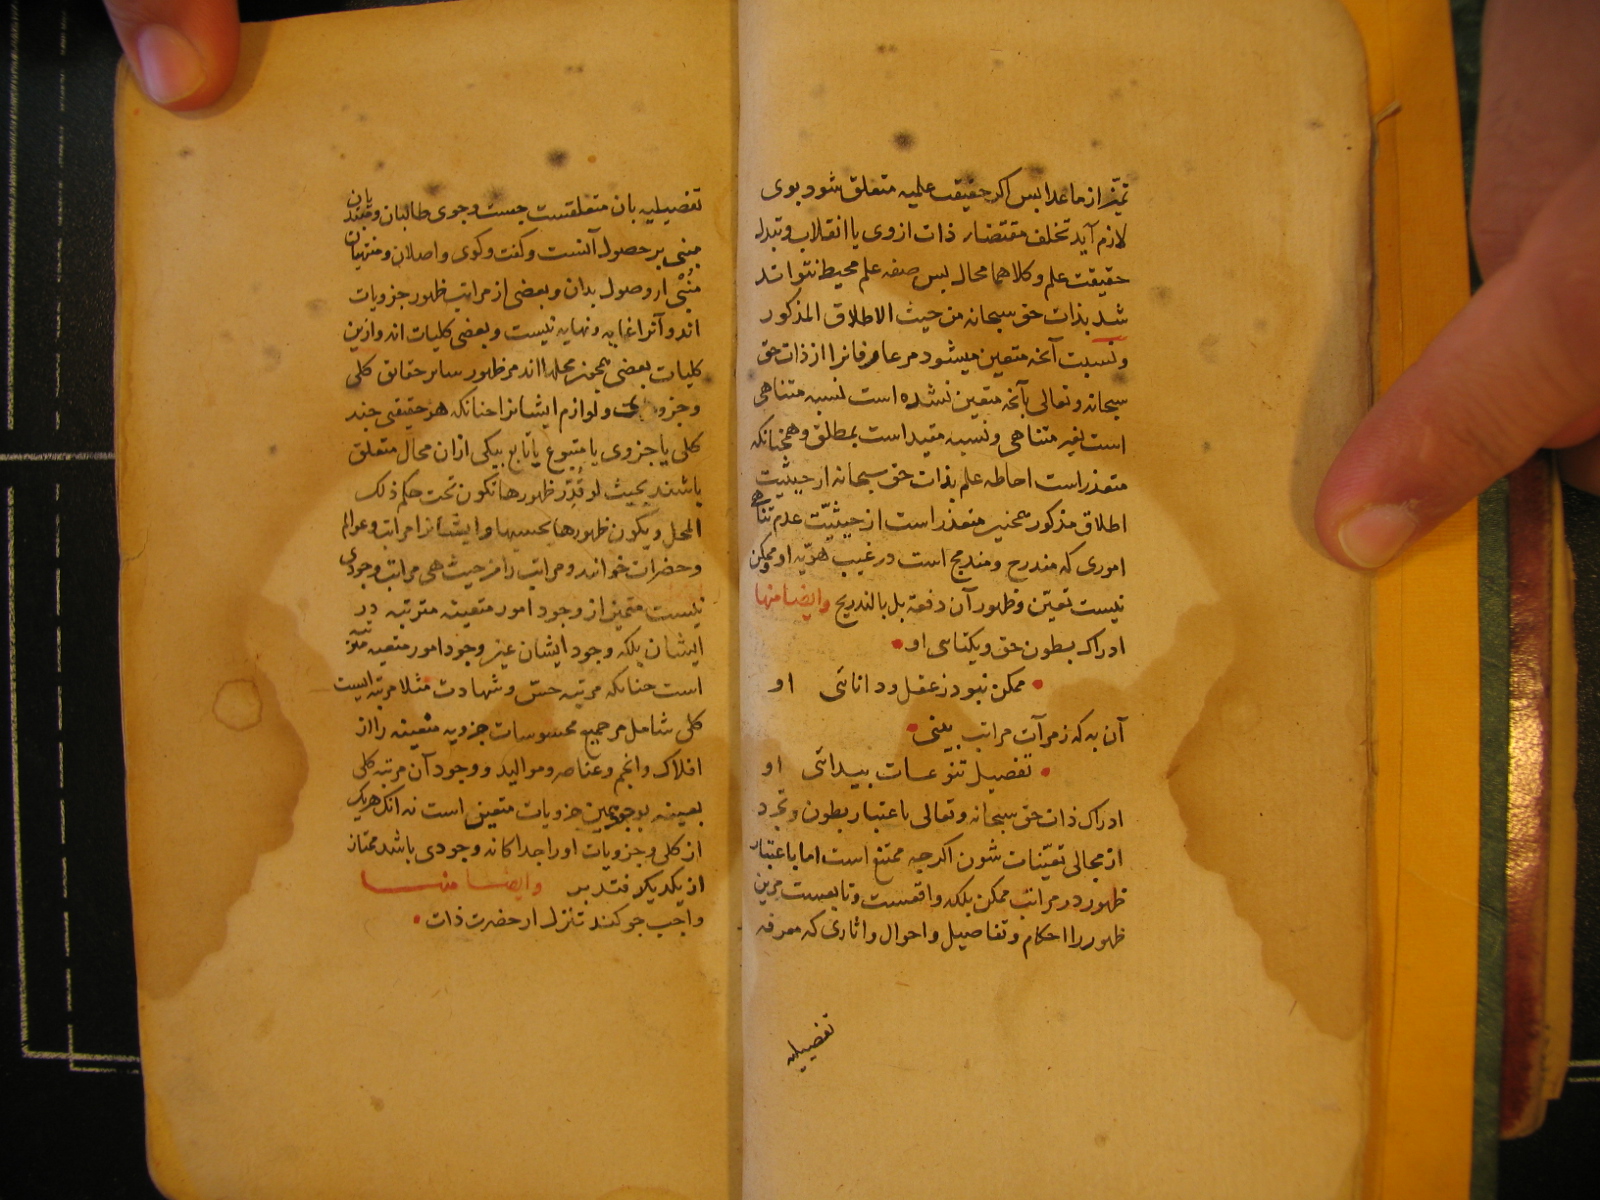 تمیّز از ماعدا پس اکر حقیقت علمیه متعلق شود بوی
لازم آید تخلف مقتضاء ذات ازوی یا انقلاب و تبدل
حقیقت علم و کلاهما محال پس صفه علم محیط نتواند
شد بذات حق سبحانه من حیث الاطلاق المذکور
و نسبت آنچه متعین میشود مر عارفانرا از ذات حق
سبحانه و تعالی بآنچه متعین نشده است نسبه متناهی
است بغیر متناهی و نسبه مقید است بمطلق و همچنانکه
متعذر است احاطه علم بذات حق سبحانه از حیثیت
اطلاق مذکور همچنین متعذر است از حیثیّت عدم تناهی
اموری که مندرج و مندمج است در غیب هویّه او و ممکن
نیست تعیّن و ظهور آن دفعة بل بالتدریج وایضا منها
ادراک بطون حق و یکتاسی او
ممکن نبود ز عقل و دانائی او
آن به که ز مرآت مراتب بینی
تفصیل تنوعات پیدائی او
ادراک ذات حق سبحانه و تعالی باعتبار بطون و تجرد
از مجالی تعیّنات شون اکرچه ممتنع است اما باعتبار
ظهور در مراتب ممکن بلکه واقعست و تابعست مرین
ظهور را احکام و تفاصیل و احوال و اثاری که معرفه
تفصیلیه
تفصیلیه بان متعلقست جست وجوی طالبان و مبتدیان
مبنی بر حصول آنست و کفت وکوی واصلان و منتهیان
منبئ از وصول بدان و بعضی از مراتب ظهور جزویات
اند و آنرا غایه و نهایه نیست و بعضی کلیات اند وازین
کلیات بعضی همچون محلها اند مر ظهور سایر حقایق کلی
و جزوی و لوازم ایشانرا چنانکه هر حقیقی چند
کلی یا جزوی یا متبوع یا تابع بیکی ازان محال متعلق
باشند بحیث لو قدّر ظهورها تکون تحت حکم ذلک
المحل و یکون ظهورها بحسبها و ایشانرا مراتب و عوالم
و حضرات خوانند و مراتب را من حیث هی مراتب وجودی
نیست متمیز از وجود امور متعینه مترتبه در
ایشان بلکه وجود ایشان عین وجود امور متعینه مترتبه
است چنانکه مرتبه حسّ و شهادت مثلا مرتبه ایست
کلی شامل مر جمیع محسوسات جزویه متعینه را از
افلاک و انجم و عناصر و موالید و وجود آن مرتبه کلی
بعینه بوجود همین جزویات متعین است نه انک هریک
از کلی و جزویات اورا جداکانه وجودی باشد ممتاز
از یکدیکر فتدبر وایضا منها
واجب چو کند تنزل از حضرت ذات